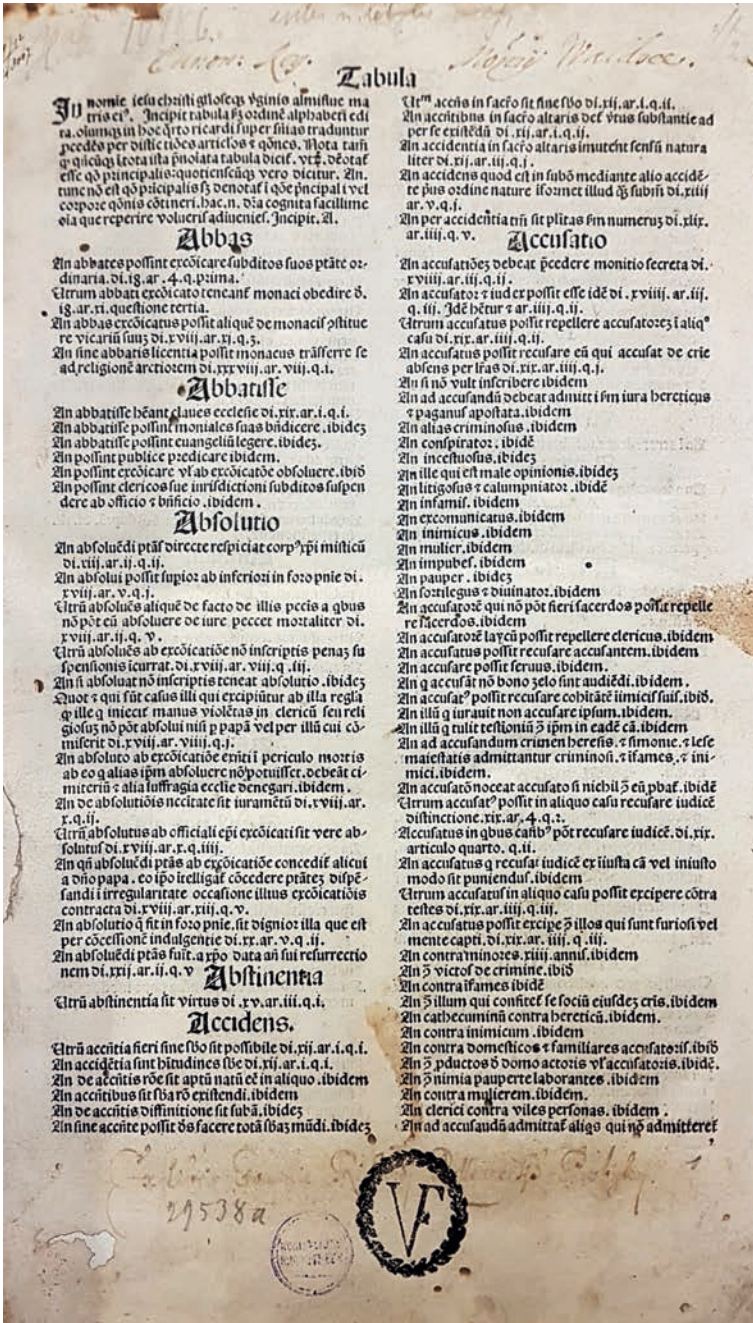 Tabula
In nomie iesu christi gl̃oseq₃ ṽginis almiflue ma
tris eiꝰ. Incipit tabula ẜm ordinẽ alphabeti edi
ta. olumq₃ in hoc q̃rto ricardi super s̃nias traduntur
p̱cedẽs per distic tiões articl̃os ⁊ qõnes. Nota tam̃
esse qõ principalis: quotienscũq₃ vero dicitur. An.
tunc nõ est qõ p̃ncipalis s₃ denotat̃ ĩ qõe p̃ncipali vel
corpore qõnis cõtineri. hac. n. dr̃a cognita facillime
oĩa que reperire volueris adiuenies. Incipit. A.
Abbas
An abbates possint excõicare subditos suos ptãte or-
dinaria. di. i8. ar. 4. q. prima.
Utrum abbati excõicato teneant̃ monaci obedire d̃.
i8. ar. xi. questione tertia.
An abbas excõicatus possit aliquẽ de monacis ꝯstitue
re vicariũ suu₃ di. xviij. ar. xj. q. 3.
An sine abbatis licentia possit monacus trãsferre se
ad religionẽ arctiorem di. xxxviij. ar. viij. q. i.
Abbatisse
An abbatisse hẽant claues ecclesie di. xix. ar. i. q. i.
An abbatisse possint moniales suas bñdicere. ibide₃
An abbatisse possint euangeliũ legere. ibide₃.
An possint publice predicare ibidem.
An possint excõicare vl̃ ab excõicatõe obsoluere. ibid̃
An possint clericos sue iurisdictioni subditos suspen
dere ab officio ⁊ bñficio. ibidem.
Absolutio
An absoluẽdi ptãs directe respiciat corpꝰ xp̃i misticũ
di. xiij. ar. ij. q. ij.
An absolui possit supior ab inferiori in foro pnĩe di.
xviij. ar. v. q. j.
Utrũ absoluẽs aliquẽ de facto de illis pccĩs a q̃bus
nõ põt eũ absoluere de iure peccet mortaliter di.
xviij. ar. ij. q. v.
Utrũ absoluẽs ab excõicatiõe nõ inscriptis pena₃ su
spensionis icurrat. di. xviij. ar. viij. q. iij.
An si absoluat nõ inscriptis teneat absolutio. ibide₃
Quot ⁊ qui sũt casus illi qui excipiũtur ab illa regl̃a
q̃ ille q̃ iniecit manus violẽtas in clericũ seu reli
giosu₃ nõ põt absolui nisi p̱ papã vel per illũ cui cõ-
miserit di. xviij. ar. viiij. q. j.
An absoluto ab excõicatiõe exñti ĩ periculo mortis
ab eo q̃ alias ip̃m absoluere nõ potuisset. debeãt ci-
miteriũ ⁊ alia suffragia ecclie denegari. ibidem.
An de absolutiõis nccĩtate sit iuramẽtũ di. xviij. ar.
x. q. ij.
Utrũ absolutus ab officiali ep̃i excõicati sit vere ab-
solutus di. xviij. ar. x. q. iiij.
An qñ absoluẽdi ptãs ab excõicatiõe concedit̃ alicui
a dño papa. eo ip̃o ĩtelligat̃ cõcedere ptãte₃ dispẽ-
sandi ĩ irregularitate occasione illius excõicatiõis
contracta di. xviij. ar. xiij. q. v.
An absolutio q̃ fit in foro pnĩe. sit dignior illa que est
per cõcessionẽ indulgentie di. xx. ar. v. q. ij.
An absoluẽdi ptãs fuĩt. a xp̃o data añ sui resurrectio
nem di. xxij. ar. ij. q. v
Abstinentia
Utrũ abstinentia sit virtus di. xv. ar. iij. q. i.
Accidens.
Utrũ accñtia fieri sine sb̃o sit possibile di. xij. ar. i. q. i.
An accidẽtia sint hitudines sb̃e di. xij. ar. i. q. i.
An de accñtis rõe sit aptũ natũ eẽ in aliquo. ibidem
An accñtibus sit sb̃a rõ existendi. ibidem
An de accñtis diffinitione sit subã. ibide₃
An sine accñte possit d̃s facere totã sb̃a₃ mũdi. ibide₃
Utᵐ accñs in sacr̃o sit sine sb̃o di. xij. ar. i. q. ii.
An accñtibus in sacr̃o altaris det̃ v̓tus substantie ad
per se existẽdũ di. xij. ar. i. q. ij.
An accidentia in sacr̃o altaris imutent sensũ natura
liter di. xij. ar. iij. q. j.
An accidens quod est in subõ mediante alio accidẽ-
te pũs ordine nature iformet illud q̃ subim̃ di. xiiij
ar. v. q. j.
An per accidẽtia tm̃ sit pl̃itas ẜm numeru₃ di. xlix.
ar. iiij. q. v.
Accusatio
An accusatiõe₃ debeat p̱cedere monitio secreta di.
xviiij. ar. iij. q. ij.
An accusator ⁊ iudex possit esse idẽ di. xviiij. ar. iij.
q. iij. Idẽ hẽtur ⁊ ar. iiij. q. ij.
Utrum accusatus possit repellere accusatore₃ ĩ aliqᵒ
casu di. xix. ar. iiij. q. ij.
An accusatus possit recusare eũ qui accusat de crĩe
absens per lr̃as di. xix. ar. iiij. q. j.
An si nõ vult inscribere ibidem
An ad accusandũ debeat admitti ẜm iura hereticus
⁊ paganus apostata. ibidem
An alias criminosus. ibidem
An conspirator. ibidẽ
An incestuosus. ibide₃
An ille qui est male opinionis. ibide₃
An litigosus ⁊ calumpniator. ibidẽ
An infamis. ibidem
An excomunicatus. ibidem
An inimicus. ibidem
An mulier. ibidem
An impubes. ibidem
An pauper. ibide₃
An sortilegus ⁊ diuinator. ibidem
An accusatorẽ qui nõ põt fieri sacerdos possit repelle
re sacerdos. ibidem
An accusatorẽ laycũ possit repellere clericus. ibidem
An accusatus possit recusare accusantem. ibidem
An accusare possit seruus. ibidem.
An q̃ accusãt nõ bono ₃elo sint audiẽdi. ibidem.
An accusatꝰ possit recusare cohĩtãtẽ iimicis suis. ibid̃.
An illũ q̃ iurauit non accusare ipsum. ibidem.
An illũ q̃ tulit testioniũ ꝯ̃ ip̃m in eadẽ cã. ibidem
An ad accusandum crimen heresis. ⁊ simonie. ⁊ lese
maiestatis admittantur criminosi. ⁊ ĩfames. ⁊ ini-
mici. ibidem.
An accusatõ noceat accusato si nichil ꝯ̃ eũ p̱bat̃. ibidẽ
Utrum accusatꝰ possit in aliquo casu recusare iudicẽ
distinctione. xix. ar. 4. q. 2.
Accusatus in q̃bus casibꝰ põt recusare iudicẽ. di. xix.
articulo quarto. q. ii.
An accusatus q̃ recusat iudicẽ ex iiusta cã vel iniusto
modo sit puniendus. ibidem
Utrum accusatus in aliquo casu possit excipere cõtra
testes di. xix. ar. iiij. q. iij.
An accusatus possit excipe ꝯ̃ illos qui sunt furiosi vel
mente capti. di. xix. ar. iiij. q. iij.
An contra minores. xiiij. annis. ibidem
An ꝯ̃ victos de crimine. ibid̃
An contra ĩfames ibidẽ
An ꝯ̃ illum qui confitet̃ se sociũ eiusde₃ crĩs. ibidem
An cathecuminũ contra hereticũ. ibidem.
An contra inimicum. ibidem
An contra domesticos ⁊ familiares accusatoris. ibid̃
An ꝯ̃ p̱ductos d̃ domo actoris vl̃ accusatoris. ibidẽ.
An ꝯ̃ nimia pauperte laborantes. ibidem
An contra mulierem. ibidem.
An clerici contra viles personas. ibidem.
An ad accusandũ admittat̃ aliq̃s qui nõ admitteret̃
29538a
VF